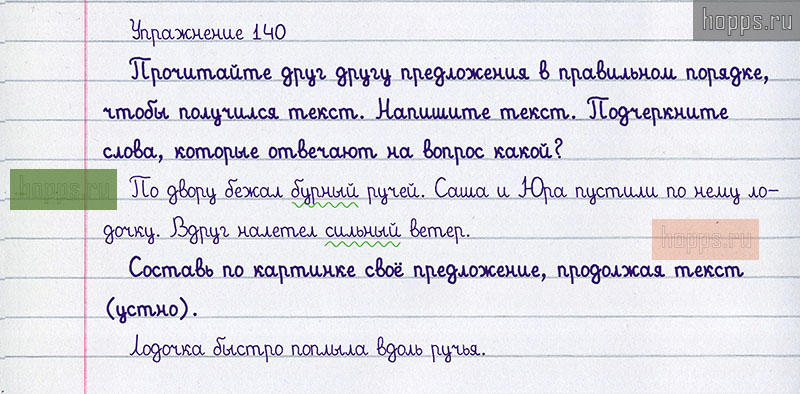 hopps.ru
Упражнение 140
Прочитайте друг другу предложения в правильном порядке,
чтобы получился текст. Напишите текст. Подчеркните
слова, которые отвечают на вопрос какой?
hopps.ru
По двору бежал бурный ручей. Саша и Юра пустили по нему ло-
дочку. Вдруг налетел сильный ветер.
hopps.ru
Составь по картинке своё предложение, продолжая текст
(устно).
Лодочка быстро поплыла вдоль ручья.